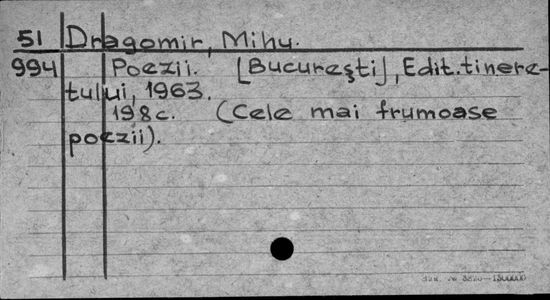 51 Dragomir, Mihu.
994 Poezii. [Bucureşti], Edit. tinere-
tului, 1963.
198 c. (Cele mai frumoase
poezii).